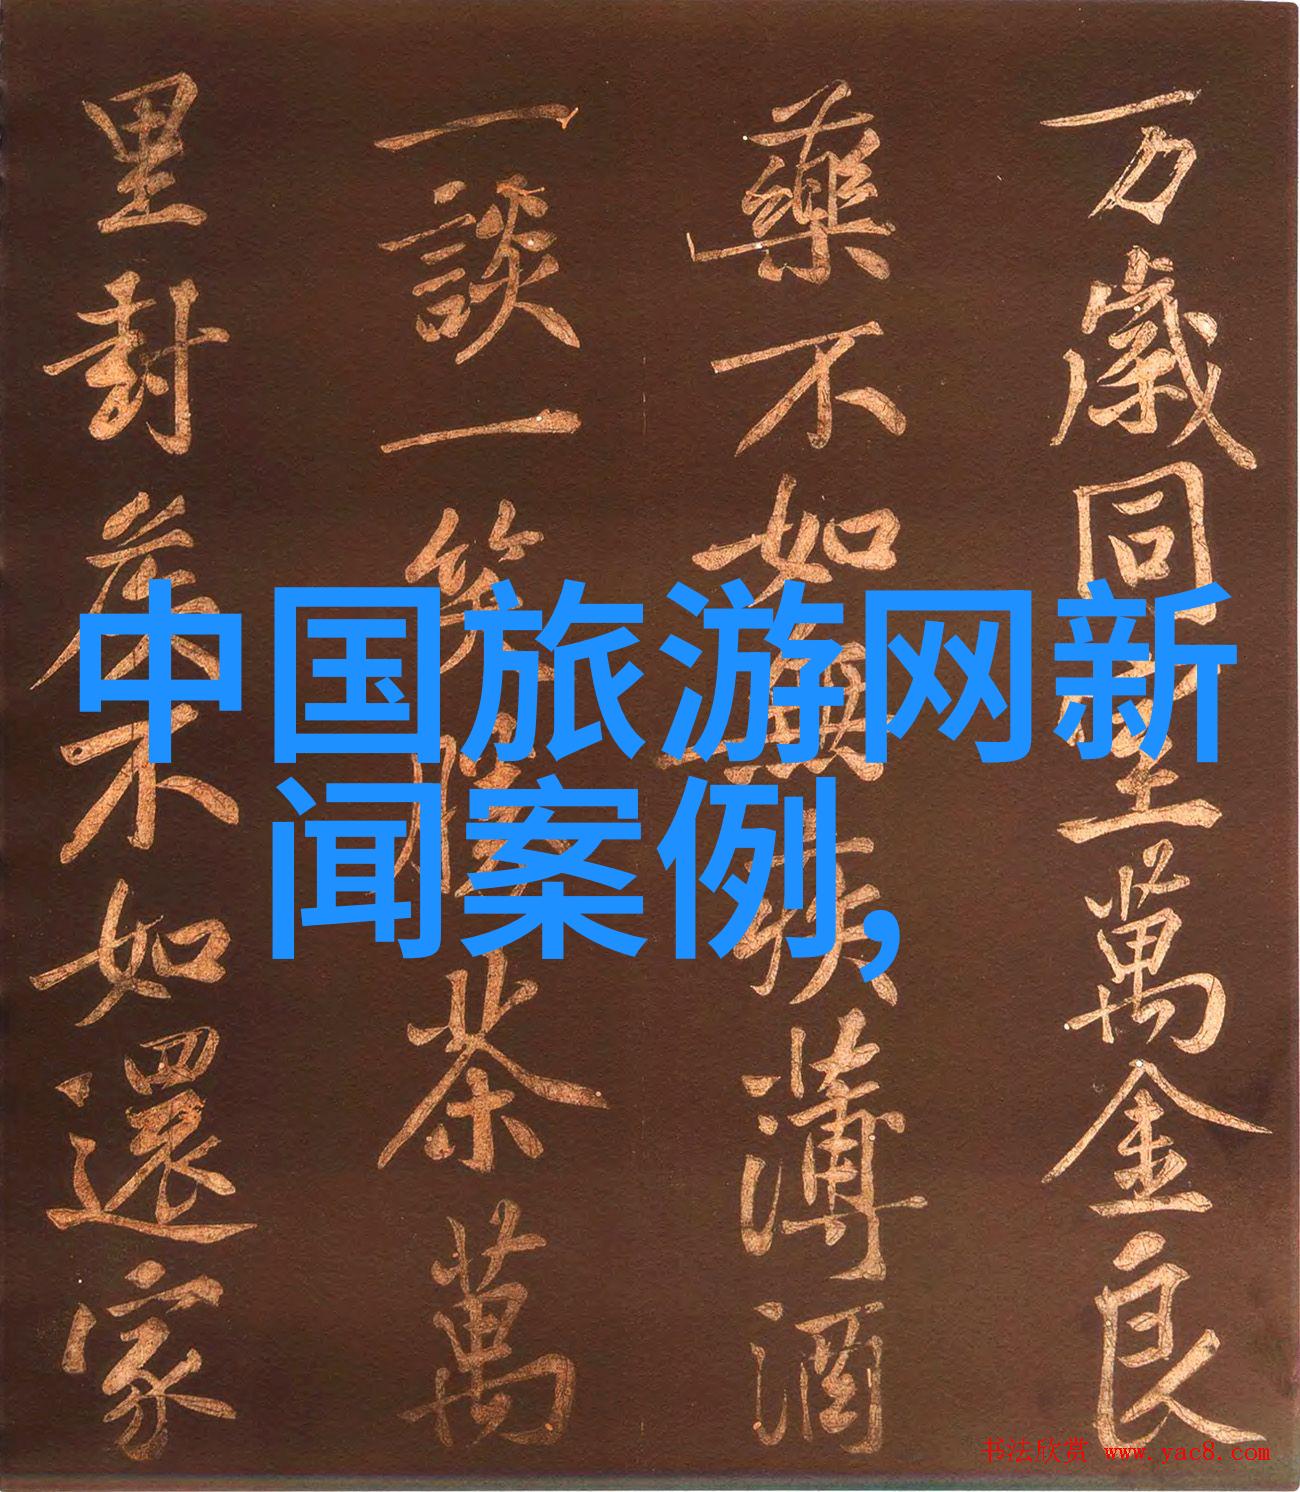 中国旅游网新
闻案例,
万歲同室萬金良
藥不如無疾薄酒
一談一笑勝茶萬
里封矦不如還家
书法欣赏 www.yac8.com